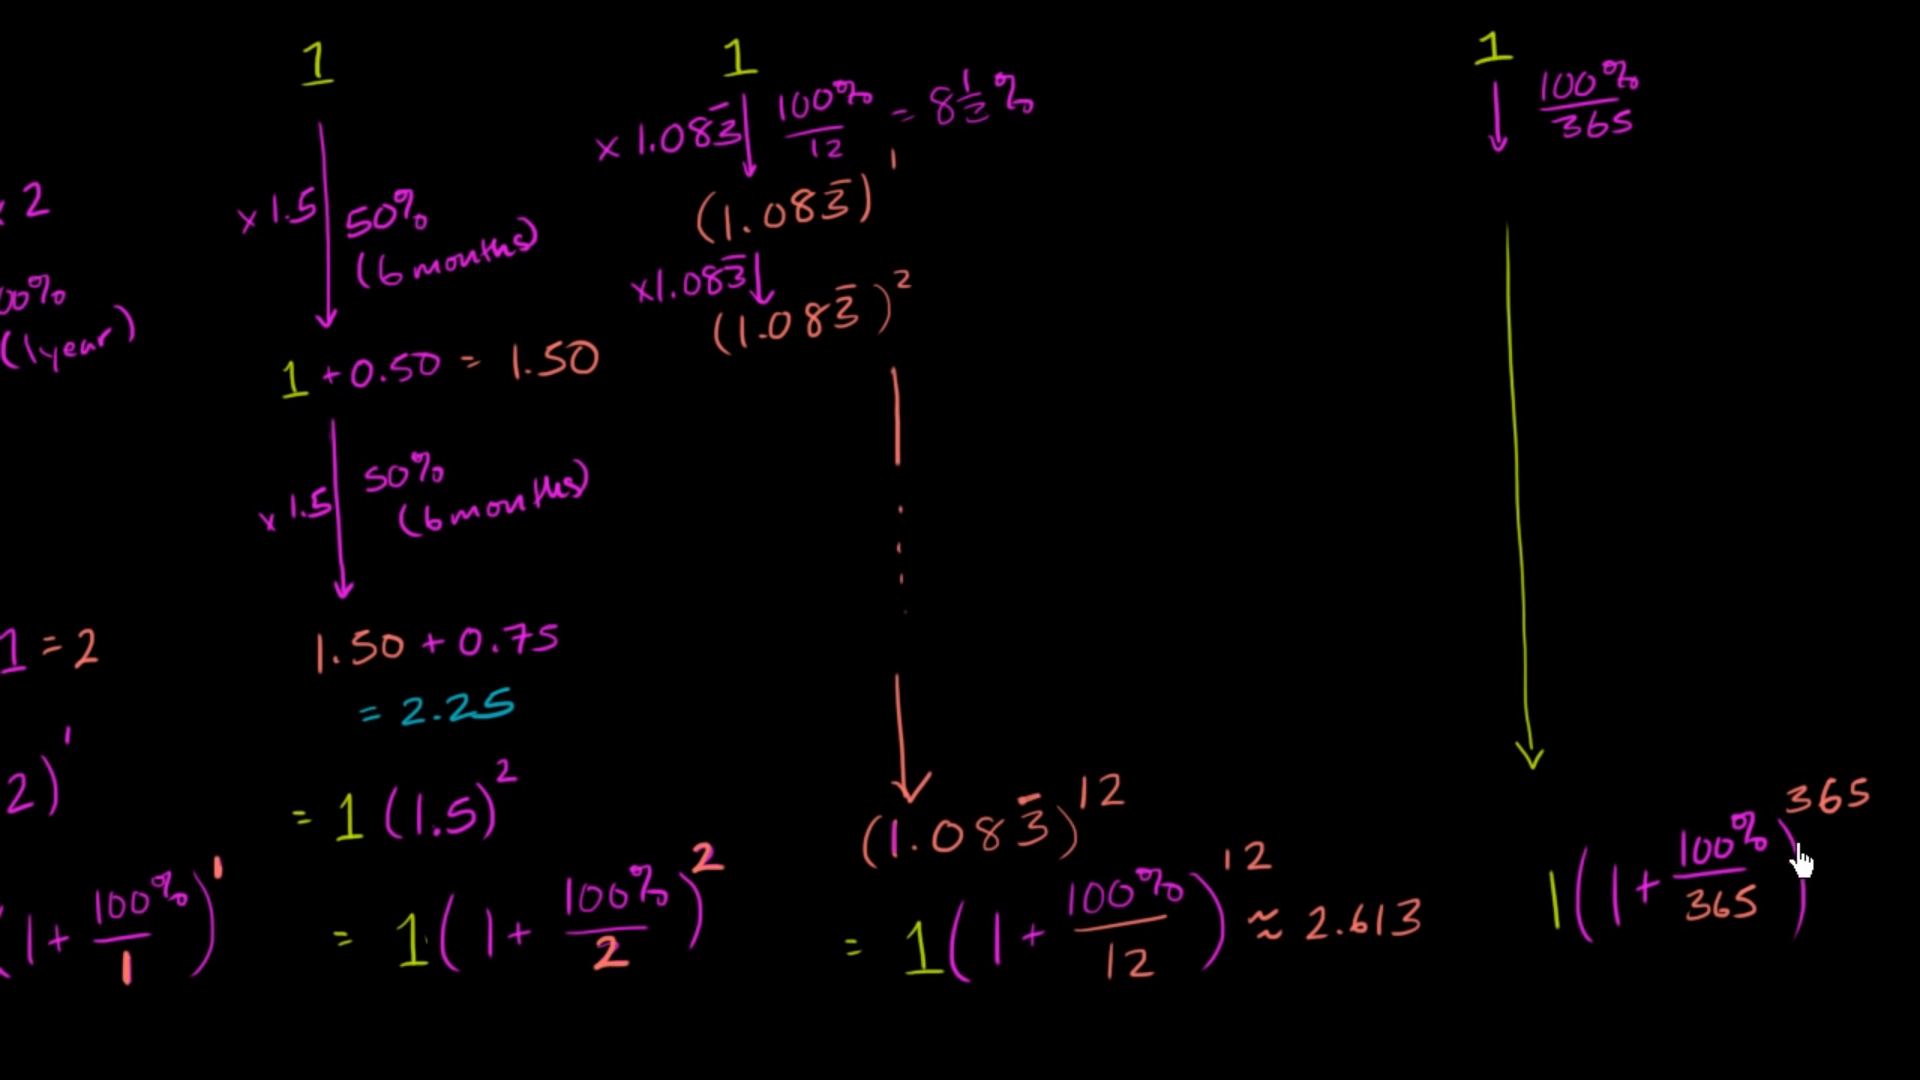 × 2
00%
(1year)
1 = 2
2)^1
(1 + 100%/1)^1
1
×1.5
50%
(6 months)
1 + 0.50 = 1.50
×1.5
50%
(6 months)
1.50 + 0.75
= 2.25
= 1 (1.5)^2
= 1(1 + 100%/2)^2
1
× 1.083̅ 100%/12 = 8 1/3 %
(1.083̅)^1
×1.083̅
(1.083̅)^2
(1.083̅)^12
= 1(1 + 100%/12)^12 ≈ 2.613
1
100%/365
1(1 + 100%/365)^365